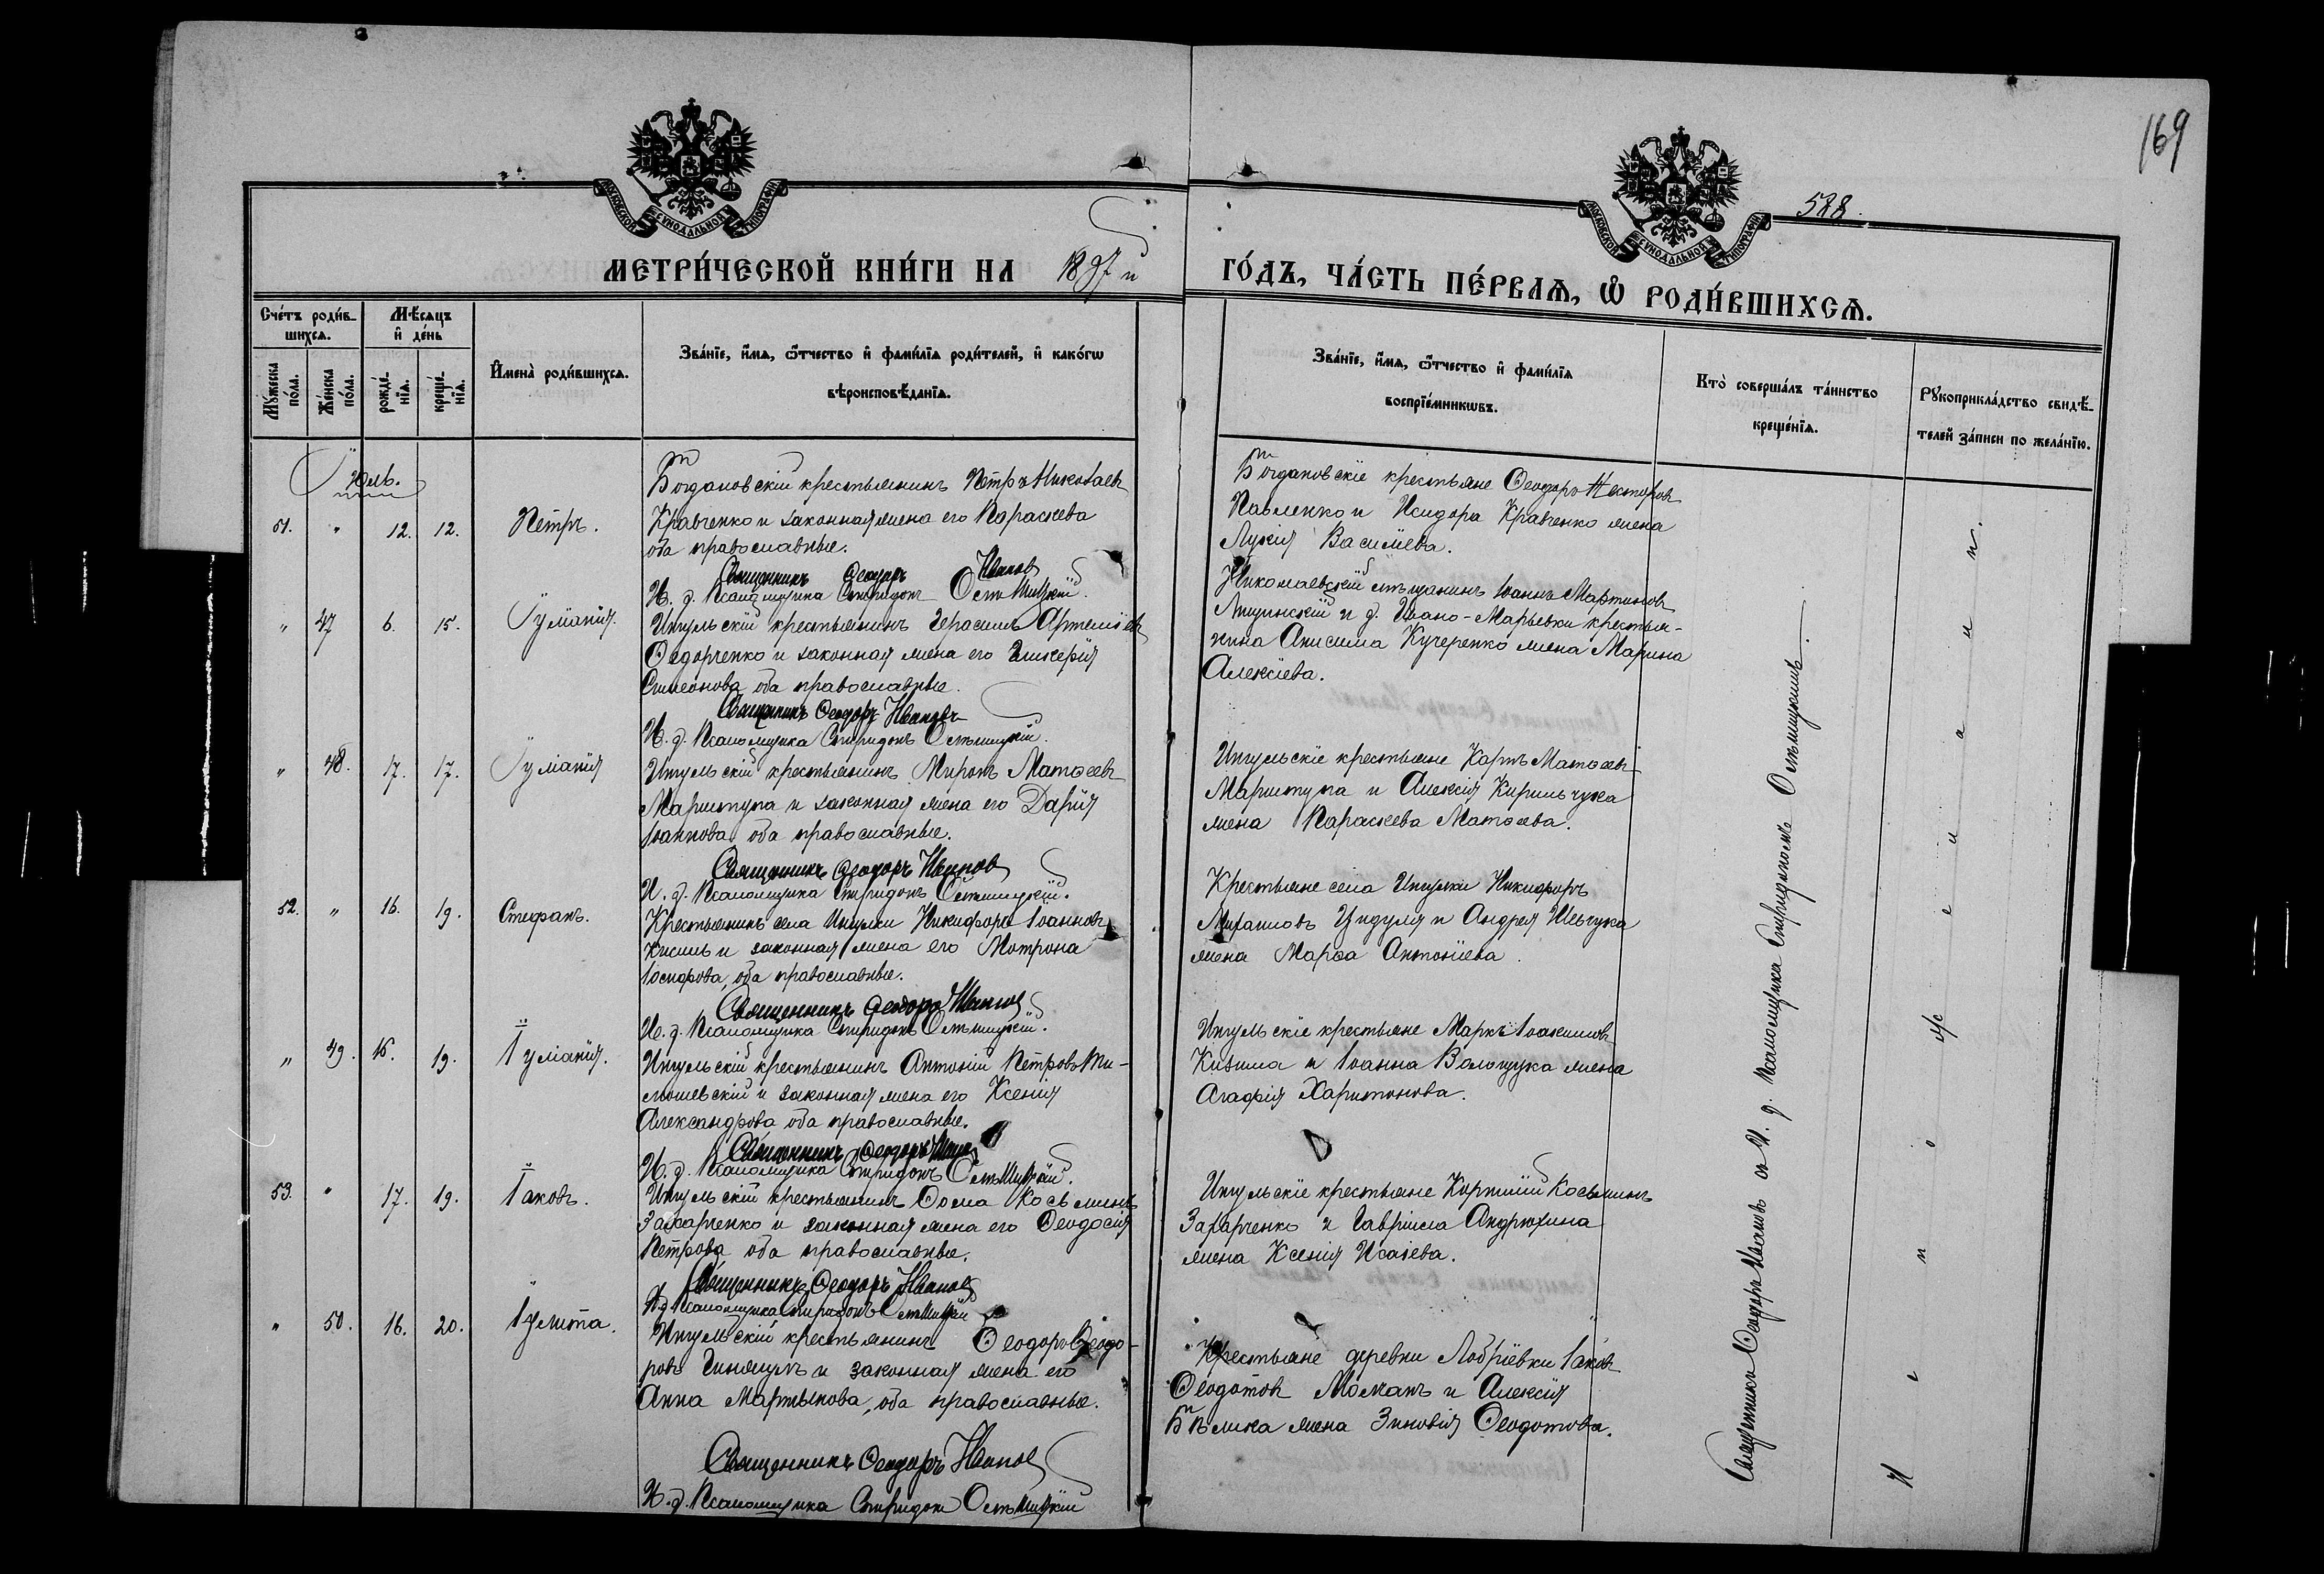 169
МОСКОВСКОЙ СѴНОДАЛЬНОЙ ТИПОГРАФІИ
МОСКОВСКОЙ СѴНОДАЛЬНОЙ ТИПОГРАФІИ
528.
МЕТРИ́ЧЕСКОЙ КНИ́ГИ НА 1897 й
ГО́ДЪ, ЧА́СТЬ ПЕ́РВАѦ, Ѡ҆ РОДИ́ВШИХСѦ.
Сче́тъ роди́в-
шихсѧ.
Мꙋ́жеска по́ла.
Же́нска по́ла.
Мѣ́сѧцъ
и҆ де́нь
рожде́-
нїѧ.
креще́-
нїѧ.
И҆мена̀ роди́вшихсѧ.
Зва́нїе, и҆́мѧ, ѻ҆́тчество и҆ фами́лїѧ роди́телей, и҆ како́гѡ
вѣроисповѣ́данїѧ.
Зва́нїе, и҆́мѧ, ѻ҆́тчество и҆ фами́лїѧ
воспрїе́мникѡвъ.
Кто̀ соверша́лъ та́инство
креще́нїѧ.
Рꙋкоприкла́дство свидѣ́-
телей за́писи по жела́нїю.
Юль.
51. " 12. 12. Петръ.
Богдановскій крестьянинъ Петръ Николаевъ
Кравченко и законная жена его Параскева
оба православные.
Священникъ Ѳеодоръ Ивановъ
И. д. Псаломщика Спиридонъ
Богдановскіе крестьяне Ѳеодоръ Несторовъ
Павленко и Исидора Кравченко жена
Лукія Василіева.
" 47 6. 15. Іуліанія.
Ингульскій крестьянинъ Герасимъ Артеміевъ
Ѳедорченко и законная жена его Гликерія
Симеонова оба православные.
Священникъ Ѳеодоръ Ивановъ
И. д. Псаломщика Спиридонъ
Николаевскій мѣщанинъ Іоаннъ Мартиновъ
и д. Ивано-Марьевки крестья-
нина Анисима Кучеренко жена Марина
Алексіева.
" 48. 17. 17. Іуліанія
Ингульскій крестьянинъ Миронъ Матѳеевъ
и законная жена его Дарія
Іоаннова оба православные.
Священникъ Ѳеодоръ Ивановъ
И. д. Псаломщика Спиридонъ
Ингульскіе крестьяне Карпъ Матѳеевъ
и Алексія Кирильчука
жена Параскева Матѳеева.
52. " 16. 19. Стефанъ.
Крестьянинъ села Ингулки Никифоръ Іоанновъ
Кисиль и законная жена его Мотрона
Іосифова, оба православные.
Священникъ Ѳеодоръ Ивановъ
И. д. Псаломщика Спиридонъ
Крестьяне села Ингулки Никифоръ
Михаиловъ Цидуля и Андрея Шевчука
жена Марѳа Антоніева.
" 49. 16. 19. Іуліанія.
Ингульскій крестьянинъ Антоній Петровъ
и законная жена его Ксенія
Александрова оба православные.
Священникъ Ѳеодоръ Ивановъ
И. д. Псаломщика Спиридонъ
Ингульскіе крестьяне Маркъ Іоакимовъ
Кизима и Іоанна Волощука жена
Агафія Харитонова.
53. " 17. 19. Іаковъ.
Ингульскій крестьянинъ Ѳома Косьминъ
Захарченко и законная жена его Ѳеодосія
Петрова оба православные.
Священникъ Ѳеодоръ Ивановъ
И. д. Псаломщика Спиридонъ
Ингульскіе крестьяне Корнилій Косьминъ
Захарченко и Гавріила Андрюхина
жена Ксенія Исаіева.
" 50. 16. 20. Іулитта.
Ингульскій крестьянинъ Ѳеодоръ Ѳеодо-
ровъ и законная жена его
Анна Мартынова, оба православные.
Священникъ Ѳеодоръ Ивановъ
И. д. Псаломщика Спиридонъ
Крестьяне деревни Іаковъ
Ѳеодотовъ Молчанъ и Алексія
Бѣлика жена Зиновія Ѳеодотова.
Священникъ Ѳеодоръ Ивановъ съ И. д. Псаломщика Спиридономъ